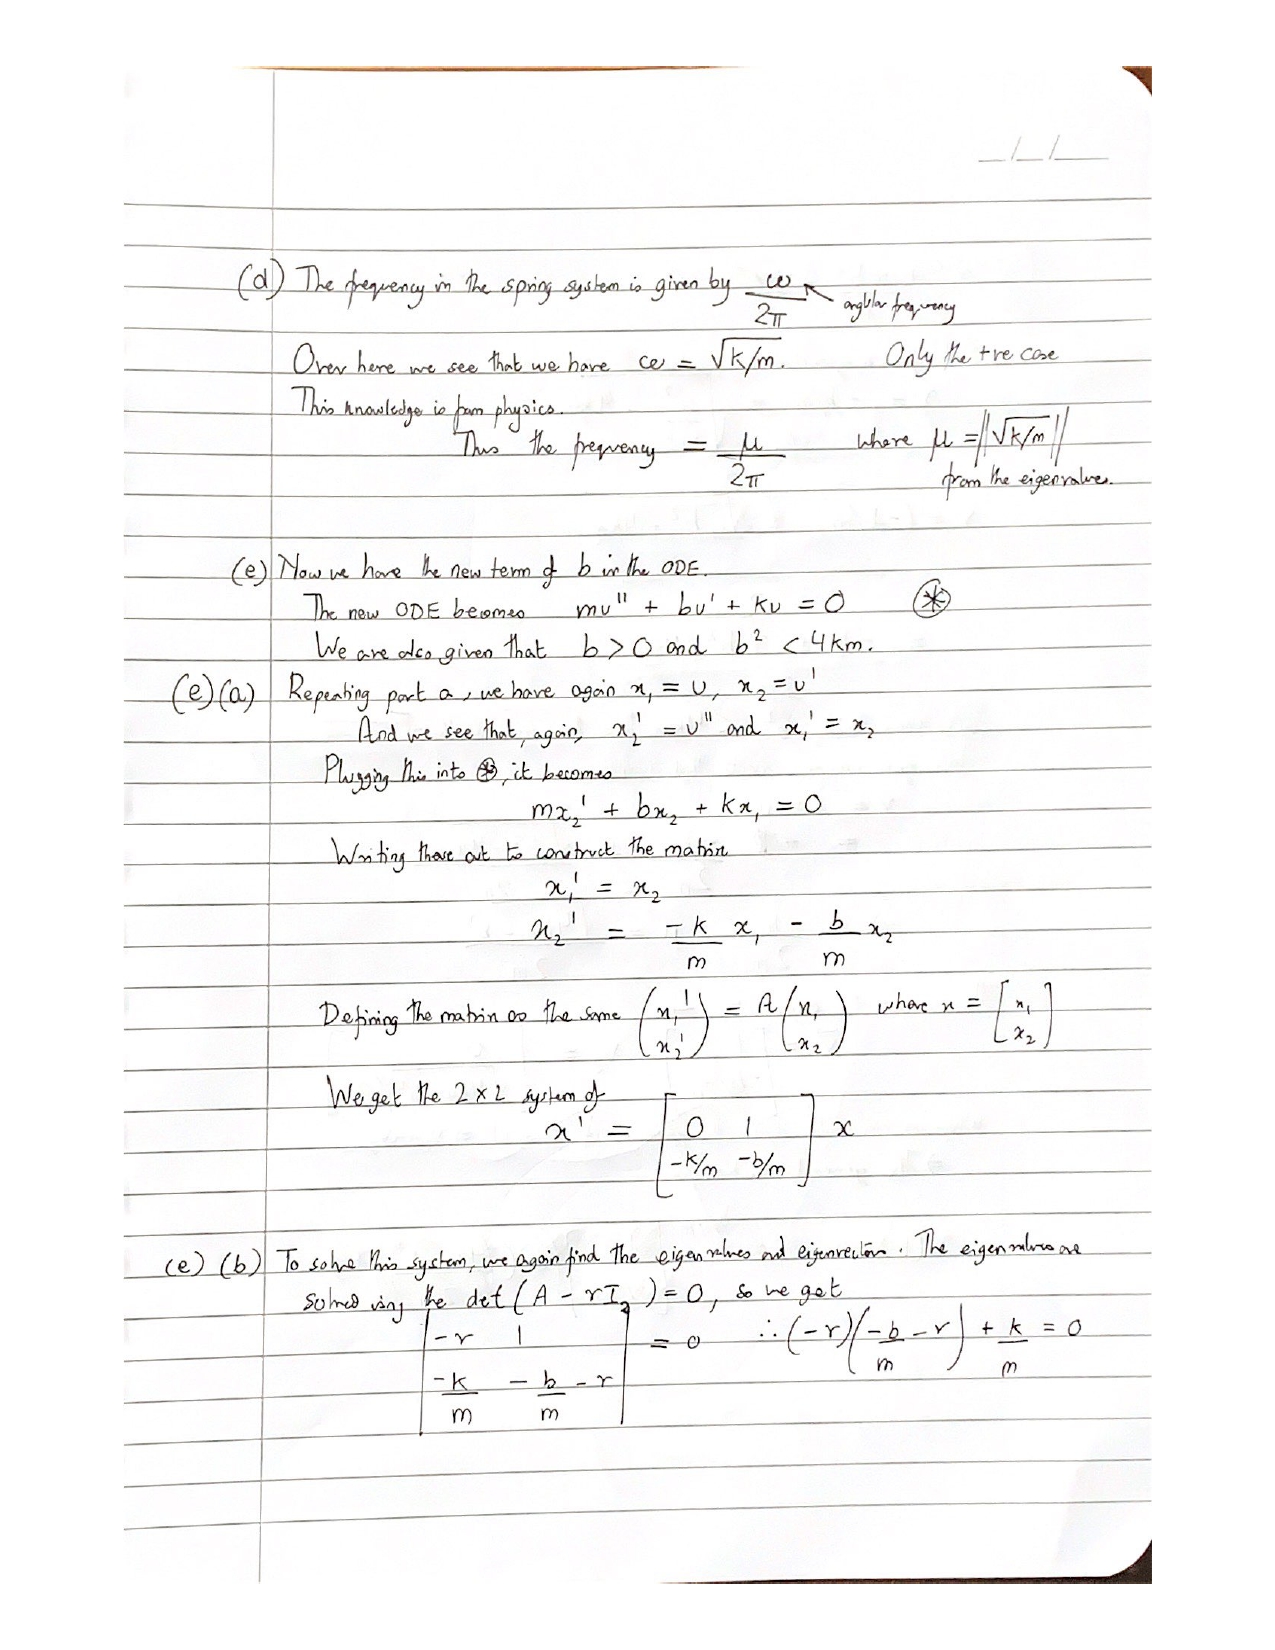 _/_/_
(d) The frequency in the spring system is given by ω/2π ← angular frequency
Over here we see that we have ω = √k/m. Only the +ve case
This knowledge is from physics.
Thus the frequency = μ/2π where μ = ||√k/m||
from the eigenvalues.
(e) Now we have the new term of b in the ODE.
The new ODE becomes mu'' + bu' + ku = 0 ⊛
We are also given that b > 0 and b² < 4km.
(e)(a) Repeating part a, we have again x₁ = u, x₂ = u'
And we see that, again, x₂' = u'' and x₁' = x₂
Plugging this into ⊛, it becomes
mx₂' + bx₂ + kx₁ = 0
Writing these out to construct the matrix
x₁' = x₂
x₂' = -k/m x₁ - b/m x₂
Defining the matrix as the same (x₁' x₂') = A(x₁ x₂) where x = [x₁ x₂]
We get the 2×2 system of
x' = [0 1 -k/m -b/m] x
(e) (b) To solve this system, we again find the eigenvalues and eigenvectors. The eigenvalues are
solved using the det(A - rI₂) = 0, so we get
|-r 1 -k/m -b/m - r| = 0 ∴ (-r)(-b/m - r) + k/m = 0